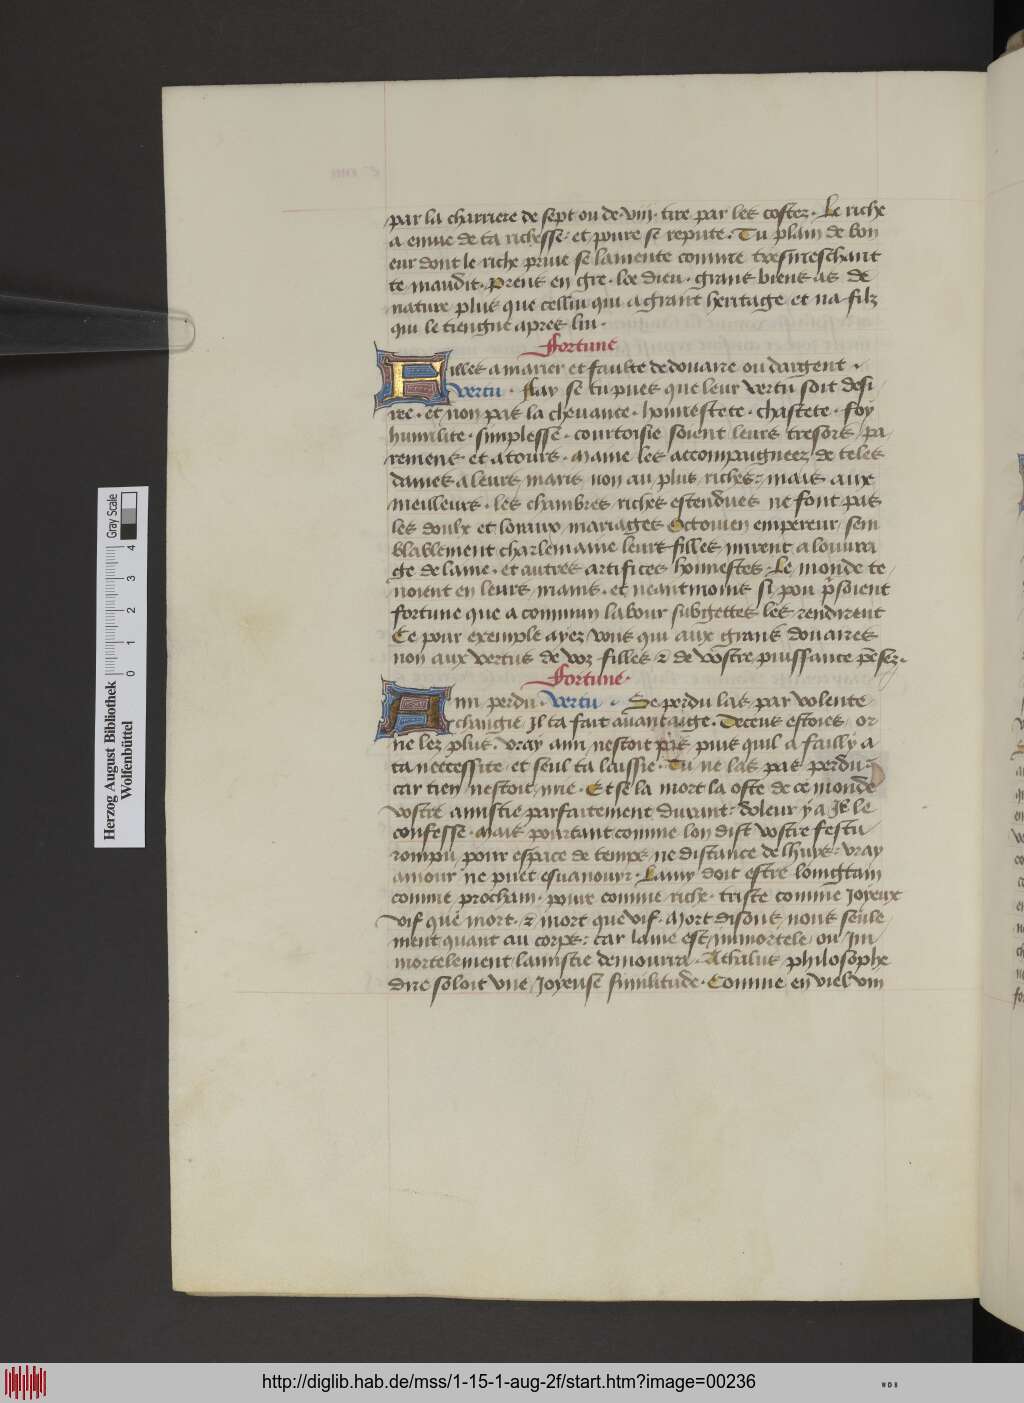 par la charriere de sept ou de viij · tire par les costez · Le riche
a enuie de ta richesse · et poure se repute · Tu plain de bon
eur dont le riche priue se lamente comme tresmeschant
te maudit · Prens en gre · loe dieu · grans biens as de
nature plus que celluy qui a grant heritage et na filz
qui le tiengne apres luy ·
Fortune
Filles a marier et faulte de douaire ou dargent ·
Vertu · Fay se tu pues que leur vertu soit desi
ree · et non pas la cheuance · honnestete · chastete · foy
humilite · simplesse · courtoisie soient leurs tresors pa
remens et atours · Maine les accompaigneez de teles
dames a leurs maris non au plus riches · mais aux
meilleurs · les chambres riches estendues ne font pas
les doulx et loyaux mariages Octouien empereur sem
blablement charlemaine leurs filles mirent a louura
ge de laine · et autres artifices honnestes · Le monde te
noient en leurs mains · et neantmoins si pou prisoient
fortune que a commun labour subgettes les rendirent
Ce pour exemple ayez vous qui aux grans douaires
non aux vertus de voz filles & de vostre puissance pensez ·
Fortune ·
Ami perdu · Vertu · Se perdu las par volente
changie Il ta fait auantaige · Deceus estoies or
ne lez plus · Vray ami nestoit pas puis quil a failly a
ta neccessite et seul ta laissie · Tu ne las pas perdu
car tien nestoit mie · Et se la mort la oste de ce monde
vostre amistie parfaitement durant · doleur y a Je le
confesse · Mais pourtant comme lon dist vostre festu
rompu pour espace de temps ne distance de lhuys · vray
amour ne puet esuanouyr · Lamy doit estre loingtain
comme prochain · poure comme riche · triste comme Joyeux
vif que mort · & mort que vif · Mort disons nous seule
ment quant au corps : car lame est immortele ou Im
mortelement lamistie demourra · Athalus philosophe
dire soloit vne Joyeuse similitude · Comme en viel vin
Herzog August Bibliothek
Wolfenbüttel
0 1 2 3 4
Gray Scale
http://diglib.hab.de/mss/1-15-1-aug-2f/start.htm?image=00236